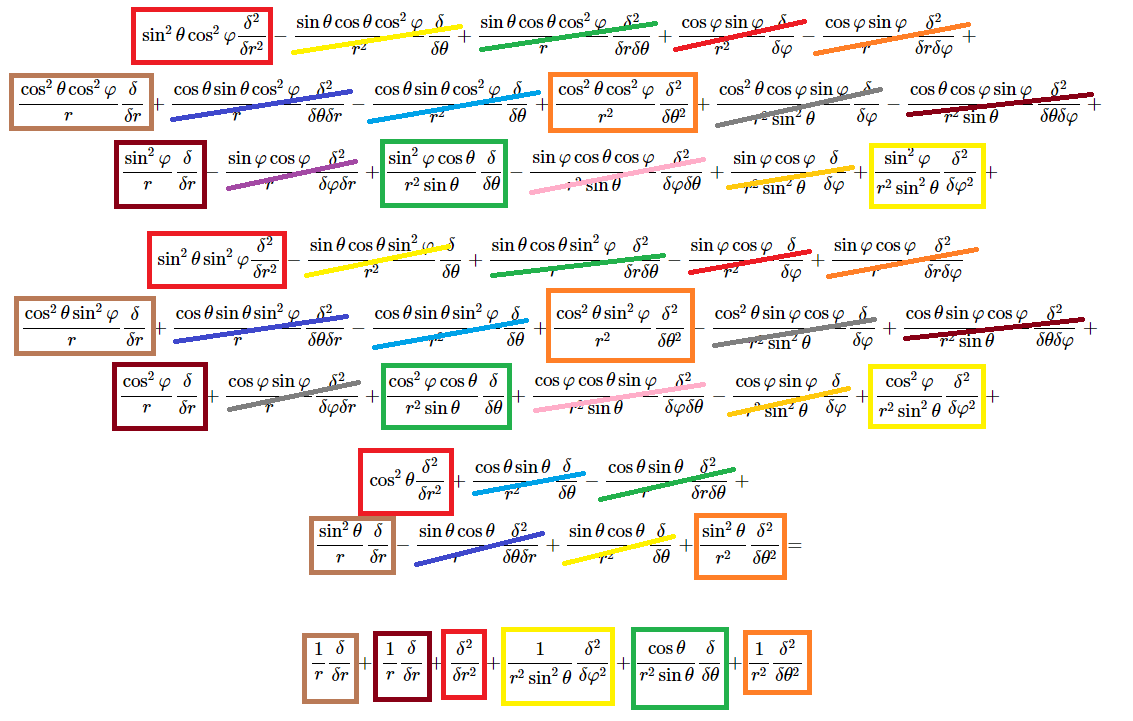 sin² θ cos² φ δ²/δr² − sin θ cos θ cos² φ/r² δ/δθ + sin θ cos θ cos² φ/r δ²/δrδθ + cos φ sin φ/r² δ/δφ − cos φ sin φ/r δ²/δrδφ +
cos² θ cos² φ/r δ/δr + cos θ sin θ cos² φ/r δ²/δθδr − cos θ sin θ cos² φ/r² δ/δθ + cos² θ cos² φ/r² δ²/δθ² + cos² θ cos φ sin φ/r² sin² θ δ/δφ − cos θ cos φ sin φ/r² sin θ δ²/δθδφ +
sin² φ/r δ/δr − sin φ cos φ/r δ²/δφδr + sin² φ cos θ/r² sin θ δ/δθ − sin φ cos θ cos φ/r² sin θ δ²/δφδθ + sin φ cos φ/r² sin² θ δ/δφ + sin² φ/r² sin² θ δ²/δφ² +
sin² θ sin² φ δ²/δr² − sin θ cos θ sin² φ/r² δ/δθ + sin θ cos θ sin² φ/r δ²/δrδθ − sin φ cos φ/r² δ/δφ + sin φ cos φ/r δ²/δrδφ
cos² θ sin² φ/r δ/δr + cos θ sin θ sin² φ/r δ²/δθδr − cos θ sin θ sin² φ/r² δ/δθ + cos² θ sin² φ/r² δ²/δθ² − cos² θ sin φ cos φ/r² sin² θ δ/δφ + cos θ sin φ cos φ/r² sin θ δ²/δθδφ +
cos² φ/r δ/δr + cos φ sin φ/r δ²/δφδr + cos² φ cos θ/r² sin θ δ/δθ + cos φ cos θ sin φ/r² sin θ δ²/δφδθ − cos φ sin φ/r² sin² θ δ/δφ + cos² φ/r² sin² θ δ²/δφ² +
cos² θ δ²/δr² + cos θ sin θ/r² δ/δθ − cos θ sin θ/r δ²/δrδθ +
sin² θ/r δ/δr − sin θ cos θ/r δ²/δθδr + sin θ cos θ/r² δ/δθ + sin² θ/r² δ²/δθ² =
1/r δ/δr + 1/r δ/δr + δ²/δr² + 1/r² sin² θ δ²/δφ² + cos θ/r² sin θ δ/δθ + 1/r² δ²/δθ²